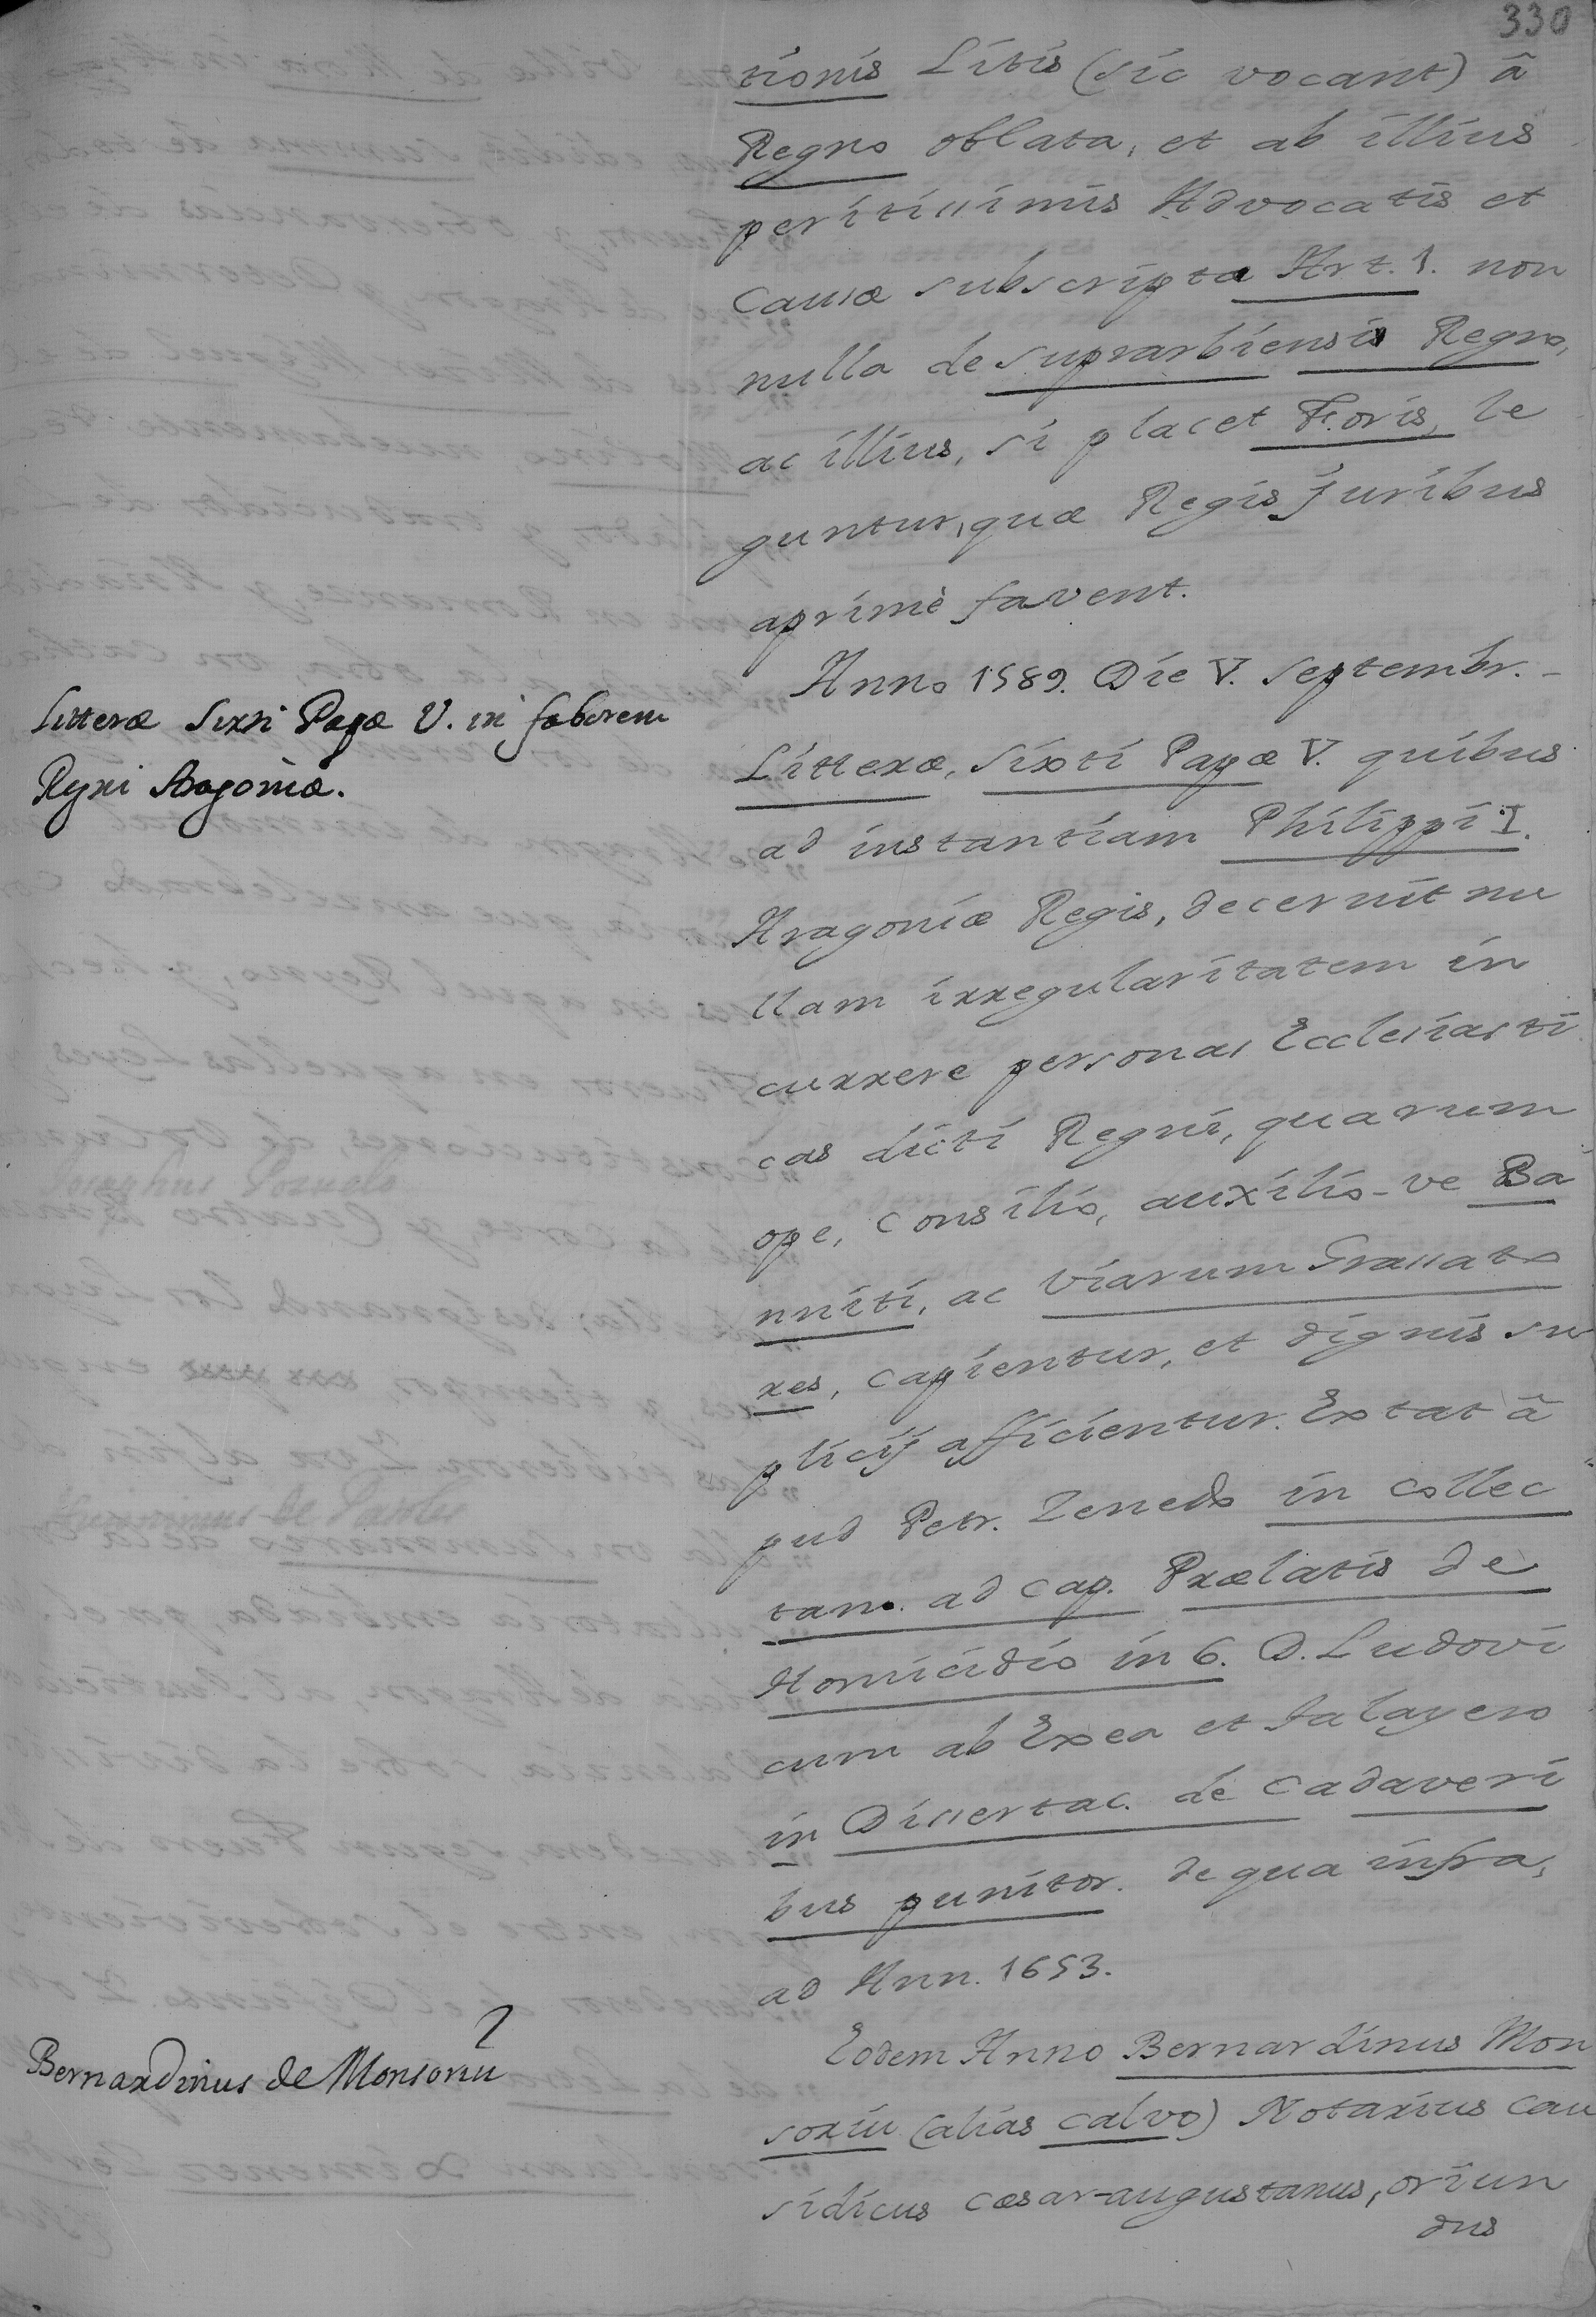 330
tionis Litis (sic vocant) â
Regno oblata, et ab illius
peritissimis Advocatis et
Causæ subscripta Art. 1. non
nulla de suprarbiensis Regno,
ac illius, si placet Foris, le
guntur, quæ Regis Juribus
aprimè favent.
Anno 1589. Die V. Septembr. -
Litteræ Sixti Papæ V. in faborem
Regni Aragoniæ.
Litteræ, Sixti Papæ V. quibus
ad instantiam Philippi I.
Aragoniæ Regis, decernit nu
llam irregularitatem in
currere personas Ecclesiasti
cas dicti Regni, quarum
ope, Consilio, auxilio-ve Ba
nniti, ac Viarum Grassato
res, capientur, et dignis su
plicijs afficientur. Extat â
pud Petr. Zenedo in Collec
tan. ad Cap. Prælatis de
Homicidio in 6. D. Ludovi
cum ab Exea et Talayero
in Dissertac. de Cadaveri
bus punitor. de qua infra,
ad Ann. 1653.
Bernardinus de Monsoriu
Eodem Anno Bernardinus Mon
soriu (alias Calvo) Notarius Cau
sidicus Cæsar-augustanus, oriun
dus